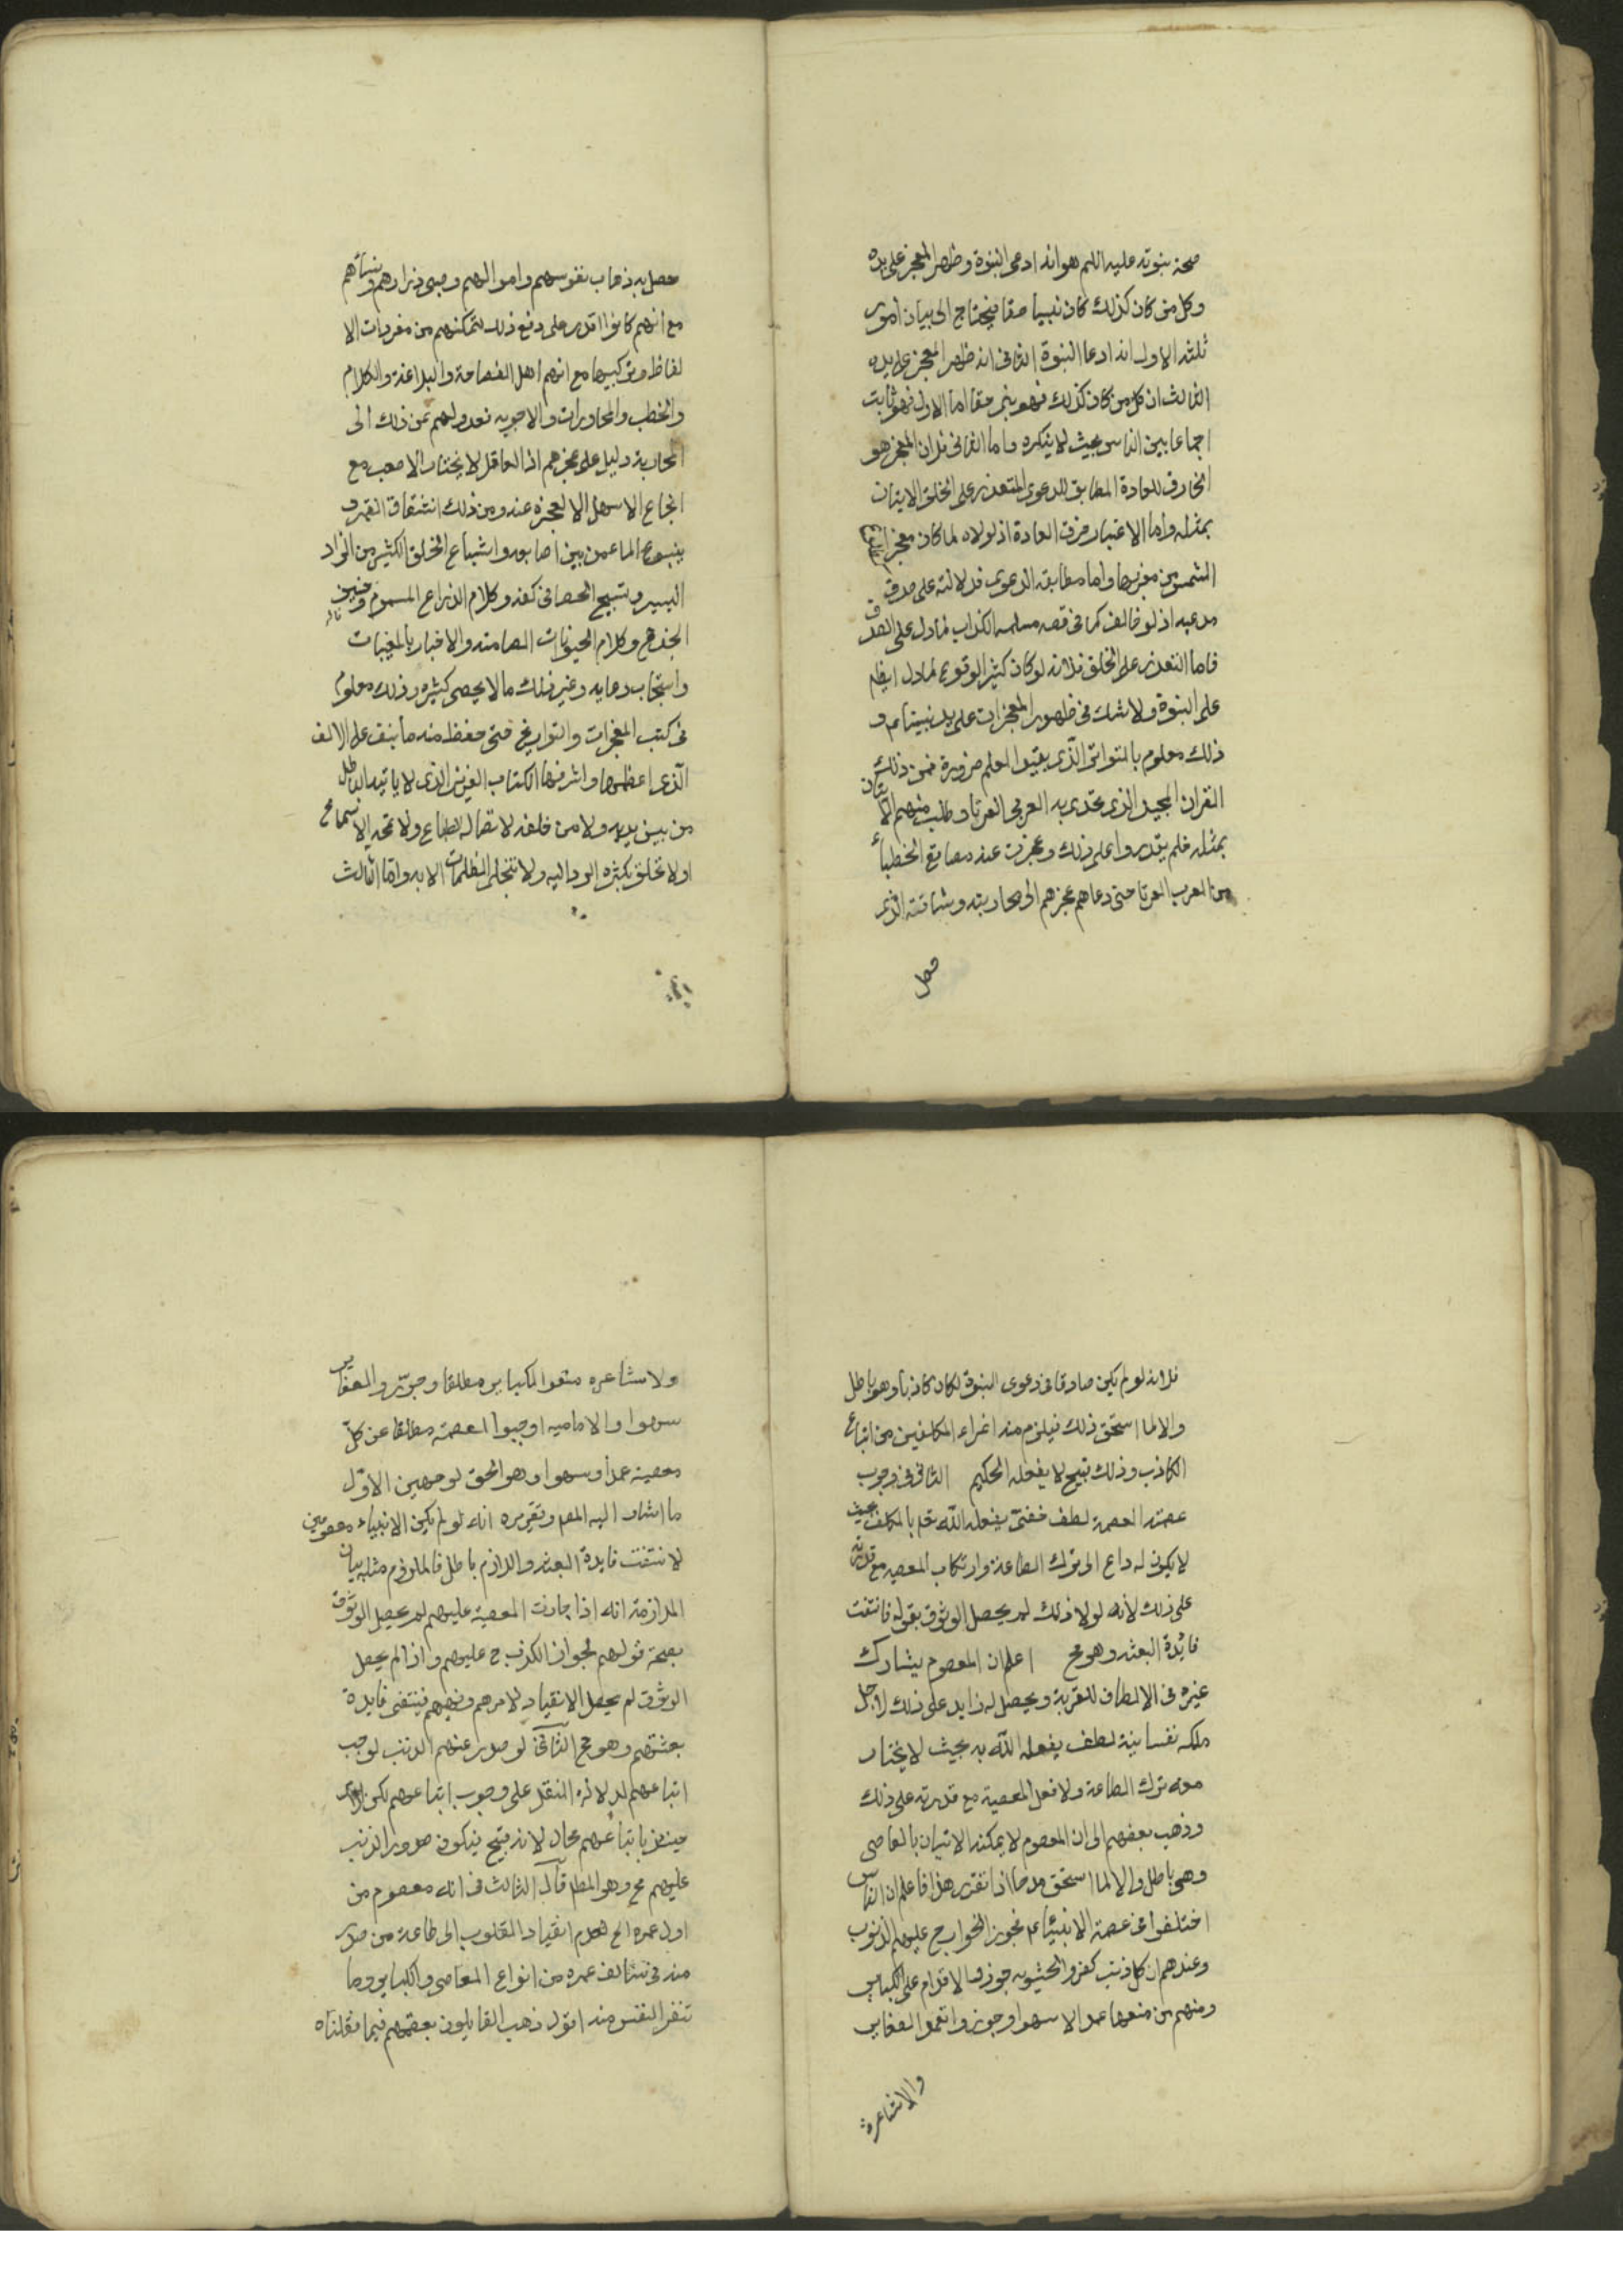 صحة نبوته عليه السلم هو انه ادعى النبوة وظهر المعجز على يده
وكل من كان كذلك كان نبيا حقا فيحتاج الى بيان امور
ثلثه الاول انه ادعا النبوة الثانى انه ظهر المعجز على يده
الثالث ان كل من كان كذلك فهو نبى حقا اما الاول فهو ثابت
اجماعا بين الناس بحيث لا ينكره واما الثانى فلان المعجز هو
الخارق للعادة المطابق للدعوى المتعذر على الخلق الاتيان
بمثله واما الاعتبار خرق العادة اذ لولاه لما كان معجزا
الشمس من مغربها واما مطابقه الدعوى فدلالته على صدق
مدعيه اذ لو خالف كما فى قصه مسلمه الكذاب لما دل على الصدق
فاما التعذر على الخلق فلانه لو كان كثير الوقوع لما دل ايظا
على النبوة ولا شك فى ظهور المعجزات على يد نبينا ع م و
ذلك معلوم بالتواتر الذى يفيد العلم ضرورة فمن ذلك
القران المجيد الذى تحدى به العربى العربا وطلب منهم الاتيان
بمثله فلم يقدروا على ذلك وعجزت عنه مصاقع الخطباء
من العرب العربا حتى دعاهم عجزهم الى محاربته ومشاقته الذى
حصل
حصل به ذهاب نفوسهم واموالهم وسبى ذراريهم ونسائهم
مع انهم كانوا اقدر على دفع ذلك لتمكنهم من مفردات الا
لفاظ وتركيبها مع انهم اهل الفصاحة والبلاغة والكلام
والخطب والمحاورات والاجوبه فعدولهم عن ذلك الى
المحاربة دليل على عجزهم اذ العاقل لا يختار الاصعب مع
انجاع الاسهل الا لعجزه عنه ومن ذلك انشقاق القمر و
ينبوع الماء من بين اصابعه واشباع الخلق الكثير من الزاد
اليسير وتسبيح الحصا فى كفه وكلام الذراع المسموم وحنين
الجذع وكلام الحيونات الصامته والاخبار بالمغيبات
واستجاب دعايه وغير ذلك مما لا يحصى كثيره وذلك معلوم
فى كتب المعجزات والتواريخ حتى حفظ منه ما ينف على الالف
الذى اعظمها واشرفها الكتاب العزيز الذى لا ياتيه الباطل
من بين يديه ولا من خلفه لا تمله الطباع ولا تمجه الاسماع
ولا تخلق بكثره الرد اليه ولا تنجلى الظلمات الا به واما الثالث
فلانه لو لم يكن صادقا فى دعوى النبوة لكان كاذبا وهو باطل
والا لما استحق ذلك فيلزم منه اغراء المكلفين من اتباع
الكاذب وذلك قبيح لا يفعله الحكيم الثانى فى وجوب
عصمته العصمة لطف خفى يفعله الله تع بالمكلف بحيث
لا يكون له داع الى ترك الطاعة وارتكاب المعصيه مع قدرته
على ذلك لأنه لولا ذلك لم يحصل الوثوق بقوله فانتفت
فايدة البعثه وهو مح اعلم ان المعصوم يشارك
غيره فى الالطاف المقربة ويحصل له زايد على ذلك لاجل
ملكه نفسانية لطف يفعله الله به بحيث لا يختار
معه ترك الطاعة ولا فعل المعصية مع قدرته على ذلك
وذهب بعضهم الى ان المعصوم لا يمكنه الاتيان بالمعاصى
وهى باطل والا لما استحق مدحا اذا تقرر هذا فاعلم ان الناس
اختلفوا فى عصمة الانبيئاء ع م فجوز الخوارج عليهم الذنوب
وعندهم ان كل ذنب كفر والحشويه جوزوا الاقدام على الكبائر
ومنهم من منعها عمدا لا سهوا وجوزوا تعمد الصغاير
والاشاعرة
والاشاعره منعوا الكباير مطلقا وجوزوا الصغاير
سهوا والاماميه اوجبوا العصمة مطلقا عن كل
معصية عمدا وسهوا وهو الحق لوجهين الاول
ما اشار اليه المص وتقريره انه لو لم يكن الانبياء معصومين
لانتفت فايدة البعثه واللازم باطل فالملزوم مثله بيان
الملازمة انه اذا جازت المعصية عليهم لم يحصل الوثوق
بصحة قولهم لجواز الكذب ح عليهم واذا لم يحصل
الوثوق لم يحصل الانقياد لامرهم ونهيهم فينتفى فايدة
بعثتهم وهو مح الثانى لو صدر عنهم الذنب لوجب
اتباعهم لدلالة النقل على وجوب اتباعهم لكن الامر
حينئذ باتباعهم محال لانه قبيح فيكون صدور الذنب
عليهم مح وهو المط قال الثالث فى انه معصوم من
اول عمره الخ لعدم انقياد القلوب الى طاعة من صدر
منه فى سالف عمره من انواع المعاصى والكباير وما
تنفر النفس منه اقول ذهب القايلون بعصمتهم فيما نقلناه